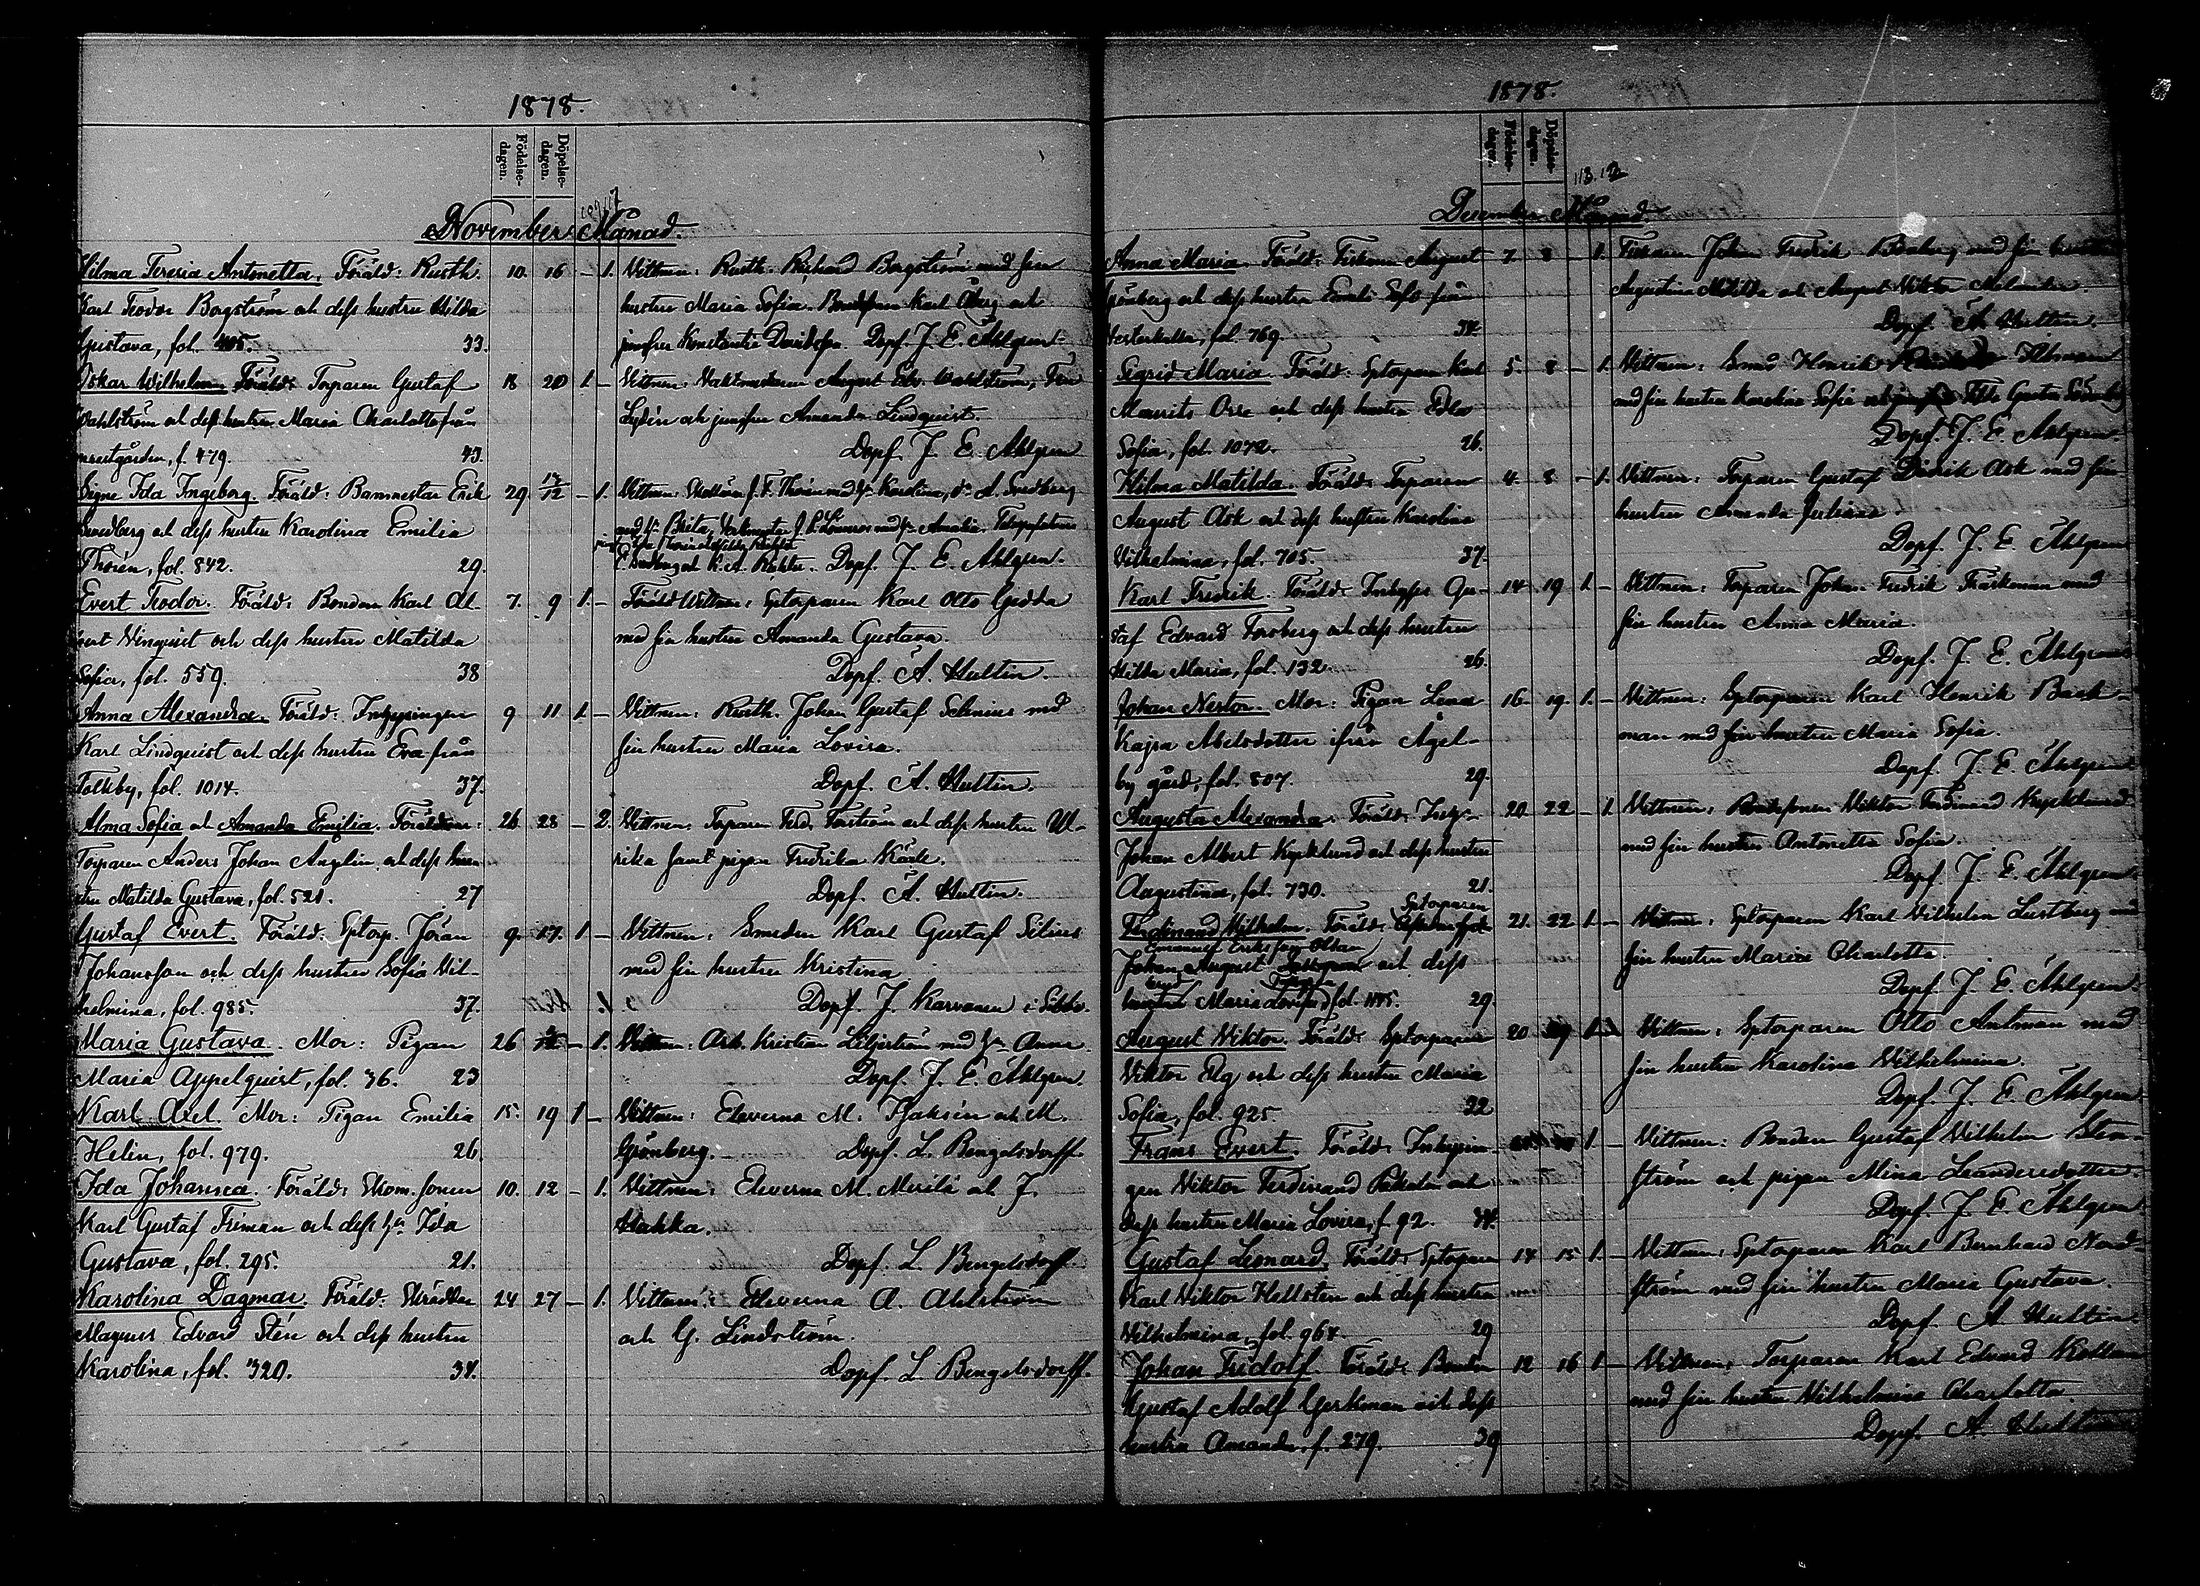 1878.
Födelse-
dagen.
Döpelse-
dagen.
November Månad.
Hilma Teresia Antonetta. Föräld: Rusth. 10. 16 - 1. Vittnen: Rusth. Richard Borgström med sin
Karl Teodor Borgström och dess hustru Hilda hustru Maria Sofia. Bondsonen Karl Öberg och
Gustava, fol. 405. 33. jungfru Konstantia Davidsson. Dopf. J. E. Ahlgren
Oskar Wilhelm. Föräld: Torparen Gustaf 18 20 1 - Vittnen: Vaktmästaren August Edv. Wahlström,
Wahlström och dess hustru Maria Charlotta från Lydén och jungfru Amanda Lindquist.
f. 479. 43. Dopf. J. E. Ahlgren
Signe Ida Ingeborg. Föräld: Banmästar Erik 29 1/12 - 1. Vittnen: J. F. Thorén med h. Karolina, A. Sundberg
Sundberg och dess hustru Karolina Emilia med h. Brita, Amalia. Telegrafisten
Thorén, fol. 842. 29. Dopf. J. E. Ahlgren.
Evert Teodor. Föräld: Bonden Karl Al- 7. 9 1. - Vittnen: Sptorparen Karl Otto Gedda
bert Winquist och dess hustru Matilda med sin hustru Amanda Gustava.
Sofia, fol. 559. 38 Dopf. A. Hultin.
Anna Alexandra. Föräld: Inhysingen 9 11 1 - Vittnen: Rusth. Johan Gustaf Selenius med
Karl Lindquist och dess hustru Eva från sin hustru Maria Lovisa.
Tolkby, fol. 1014. 37. Dopf. A. Hultin.
Alma Sofia och Amanda Emilia. Föräldrar: 26 28 - 2. Vittnen: Torparen Ferd. Forström och dess hustru Ul-
Torparen Anders Johan Anglin och dess hus- rika samt pigan Fredrika Kärle.
tru Matilda Gustava, fol. 521. 27 Dopf. A. Hultin.
Gustaf Evert. Föräld: Sptorp. Jöran 9. 17. 1 - Vittnen: Smeden Karl Gustaf Silius
Johansson och dess hustru Sofia Vil- med sin hustru Kristina
helmina, fol. 985. 37. Dopf. J. Karvonen i Sibbo.
Maria Gustava. Mor: Pigan 26 - 1. Vittnen: Arb. Kristian Liljeström med h. Anna.
Maria Appelquist, fol. 36. 23 Dopf. J. E. Ahlgren.
Karl Axel. Mor: Pigan Emilia 15. 19 1 - Vittnen: Eleverna M. och M.
Helin, fol. 979. 26 Grönberg. Dopf. L. Bengelsdorff.
Ida Johanna. Föräld: Skom. sonen 10. 12 - 1. Vittnen: Eleverna M. Merilä och J.
Karl Gustaf Friman och dess h. Ida Hakka.
Gustava, fol. 295. 21. Dopf. L. Bengelsdorff.
Karolina Dagmar. Föräld: Skräddar 24 27 - 1. Vittnen: Eleverna A. Ahlström
Magnus Edvard Stén och dess hustru och G. Lindström.
Karolina, fol. 320. 34. Dopf. L. Bengelsdorff.
1878.
Födelse-
dagen.
Döpelse-
dagen.
December Månad.
Anna Maria. Föräld: Fiskaren August 7 8 - 1. Johan Fredrik med sin hustru
Grönberg och dess hustru Sofia från Augustina Matilda och August Viktor
fol. 769. 34. Dopf. A. Hultin.
Sigrid Maria. Föräld: Sptorparen Karl 5. 8 - 1. Vittnen: Smed Henrik
Maurits Orre och dess hustru Edla med sin hustru Karolina Sofia
Sofia, fol. 1072. 26. Dopf. J. E. Ahlgren.
Hilma Matilda. Föräld: Torparen 4. 8 - 1. Vittnen: Torparen Gustaf Didrik Ask med sin
August Ask och dess hustru Karolina hustru Amanda Juliana.
Vilhelmina, fol. 705. 37. Dopf. J. E. Ahlgren
Karl Fredrik. Föräld: Inhyses Gu- 14 19 1. - Vittnen: Torparen Johan Fredrik med
staf Edvard Forsberg och dess hustru sin hustru Anna Maria.
Hilda Maria, fol. 132. 26. Dopf. J. E. Ahlgren
Johan Nestor. Mor: Pigan Lena 16. 19. 1. - Vittnen: Sptorparen Karl Henrik Back-
Kajsa Abelsdotter ifrån Ägel- man med sin hustru Maria Sofia.
by gård, fol. 807. 29. Dopf. J. E. Ahlgren
Augusta Alexandra. Föräld: Inhys. 20 22 - 1. Vittnen: Bondsonen Viktor Ferdinand Kycklund
Johan Albert Kycklund och dess hustru med sin hustru Antonetta Sofia.
Augustina, fol. 730. 21. Dopf. J. E. Ahlgren
Sptorparen
Ferdinand Wilhelm. Föräld: 21. 22 1. - Vittnen: Sptorparen Karl Vilhelm Lustberg med
Johan August och dess sin hustru Maria Charlotta.
Maria fol. 1145. 29 Dopf. J. E. Ahlgren.
August Viktor. Föräld: Sptorparen 20 Vittnen: Sptorparen Otto Antman med
Viktor Elg och dess hustru Maria sin hustru Karolina Wilhelmina.
Sofia, fol. 925. 22 Dopf. J. E. Ahlgren
Frans Evert. Föräld: Inhysin- 1. - Vittnen: Bonden Gustaf Wilhelm Sten-
gen Viktor Ferdinand och ström och pigan Mina Leandersdotter.
dess hustru Maria Lovisa, f. 92. 34. Dopf. J. E. Ahlgren
Gustaf Leonard. Föräld: Sptorparen 14 15 1. - Vittnen: Sptorparen Karl Bernhard Nord-
Karl Viktor Hellsten och dess hustru ström med sin hustru Maria Gustava.
Wilhelmina, fol. 964. 29 Dopf. A. Hultin
Johan Fridolf. Föräld: Bonden 12 16 1 - Vittnen: Torparen Karl Edvard
Gustaf Adolf Gerkman och dess med sin hustru Wilhelmina Charlotta.
hustru Amanda, f. 279. 39 Dopf. A. Hultin